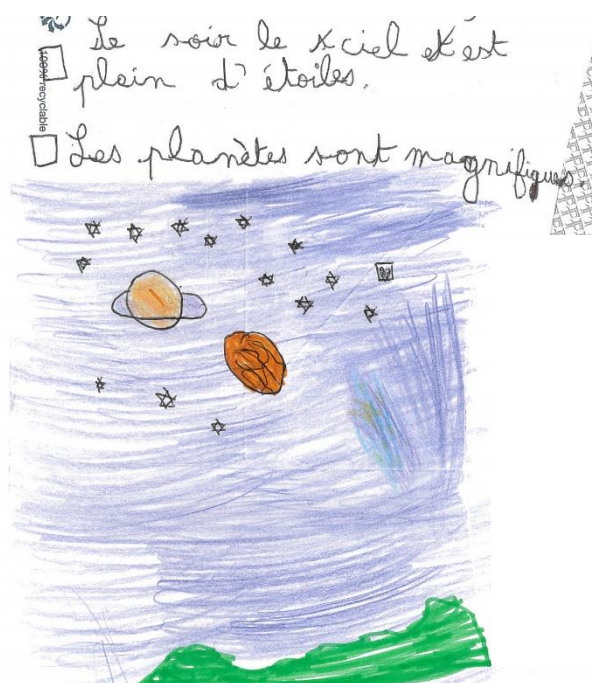 Le soir le x ciel et est
plein d'étoiles.
100% recyclable
Les planètes sont magnifiques.